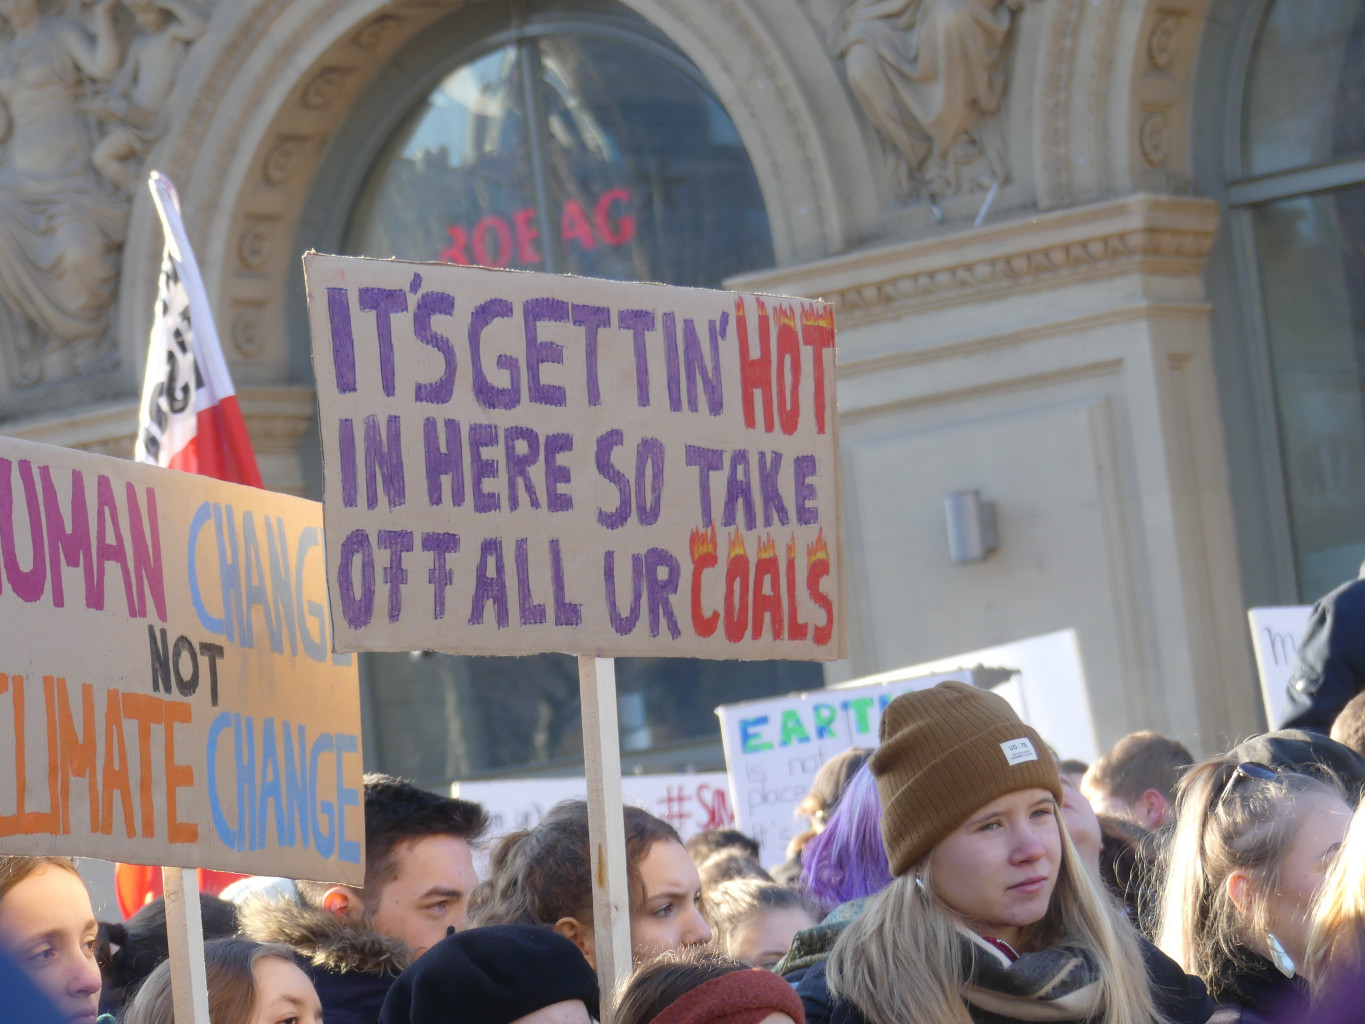 IT'S GETTIN' HOT
IN HERE SO TAKE
OFF ALL UR COALS
HUMAN CHANGE
NOT
CLIMATE CHANGE
EARTH
is not
place
UO-76